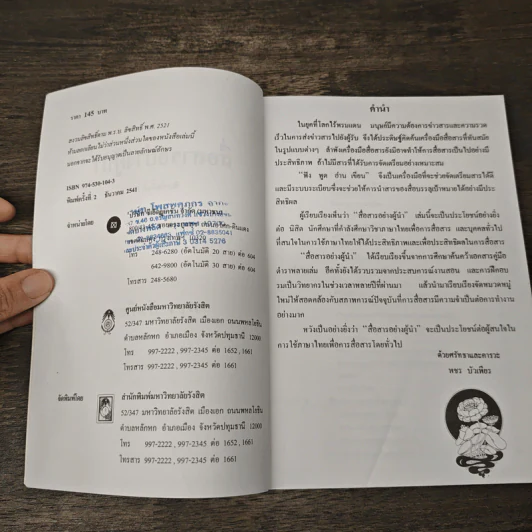 ราคา 145 บาท
สงวนลิขสิทธิ์ตาม พ.ร.บ. ลิขสิทธิ์ พ.ศ. 2521
ห้ามลอกเลียนไม่ว่าส่วนหนึ่งส่วนใดของหนังสือเล่มนี้
นอกจากจะได้รับอนุญาตเป็นลายลักษณ์อักษร
ISBN 974-530-104-3
พิมพ์ครั้งที่ 2 ธันวาคม 2541
จำหน่ายโดย
โทร 248-6280 (อัตโนมัติ 20 สาย) ต่อ 604
642-9800 (อัตโนมัติ 30 สาย) ต่อ 604
โทรสาร 248-5680
ศูนย์หนังสือมหาวิทยาลัยรังสิต
52/347 มหาวิทยาลัยรังสิต เมืองเอก ถนนพหลโยธิน
ตำบลหลักหก อำเภอเมือง จังหวัดปทุมธานี 12000
โทร 997-2222, 997-2345 ต่อ 1652, 1661
โทรสาร 997-2222, 997-2345 ต่อ 1661
จัดพิมพ์โดย
สำนักพิมพ์มหาวิทยาลัยรังสิต
52/347 มหาวิทยาลัยรังสิต เมืองเอก ถนนพหลโยธิน
ตำบลหลักหก อำเภอเมือง จังหวัดปทุมธานี 12000
โทร 997-2222, 997-2345 ต่อ 1652, 1661
โทรสาร 997-2222, 997-2345 ต่อ 1661
คำนำ
ในยุคที่โลกไร้พรมแดน มนุษย์มีความต้องการข่าวสารและความรวด
เร็วในการส่งข่าวสารไปยังผู้รับ จึงได้ประดิษฐ์คิดค้นเครื่องมือสื่อสารที่ทันสมัย
ในรูปแบบต่างๆ ลำพังเครื่องมือสื่อสารยังมิอาจทำให้การสื่อสารเป็นไปอย่างมี
ประสิทธิภาพ ถ้าไม่มีสารที่ได้รับการจัดเตรียมอย่างเหมาะสม
"ฟัง พูด อ่าน เขียน" จึงเป็นเครื่องมือที่จะช่วยจัดเตรียมสารได้ดี
และมีระบบระเบียบซึ่งจะช่วยให้การนำสารของสื่อบรรลุเป้าหมายได้อย่างมีประ
สิทธิผล
ผู้เรียบเรียงเห็นว่า "สื่อสารอย่างผู้นำ" เล่มนี้จะเป็นประโยชน์อย่างยิ่ง
ต่อ นิสิต นักศึกษาที่กำลังศึกษาวิชาภาษาไทยเพื่อการสื่อสาร และบุคคลทั่วไป
ที่สนใจในการใช้ภาษาไทยให้ได้ประสิทธิภาพและเพื่อประสิทธิผลในการสื่อสาร
"สื่อสารอย่างผู้นำ" ได้เรียบเรียงขึ้นจากการศึกษาค้นคว้าเอกสารคู่มือ
ตำราหลายเล่ม อีกทั้งยังได้รวบรวมจากประสบการณ์งานสอน และการฝึกอบ
รมเป็นวิทยากรในช่วงเวลาหลายปีที่ผ่านมา แล้วนำมาเรียบเรียงจัดหมวดหมู่
ใหม่ให้สอดคล้องกับสภาพการณ์ปัจจุบันที่การสื่อสารมีความจำเป็นต่อการทำงาน
อย่างมาก
หวังเป็นอย่างยิ่งว่า "สื่อสารอย่างผู้นำ" จะเป็นประโยชน์ต่อผู้สนใจใน
การใช้ภาษาไทยเพื่อการสื่อสารโดยทั่วไป
ด้วยศรัทธาและคารวะ
พชร บัวเพียร